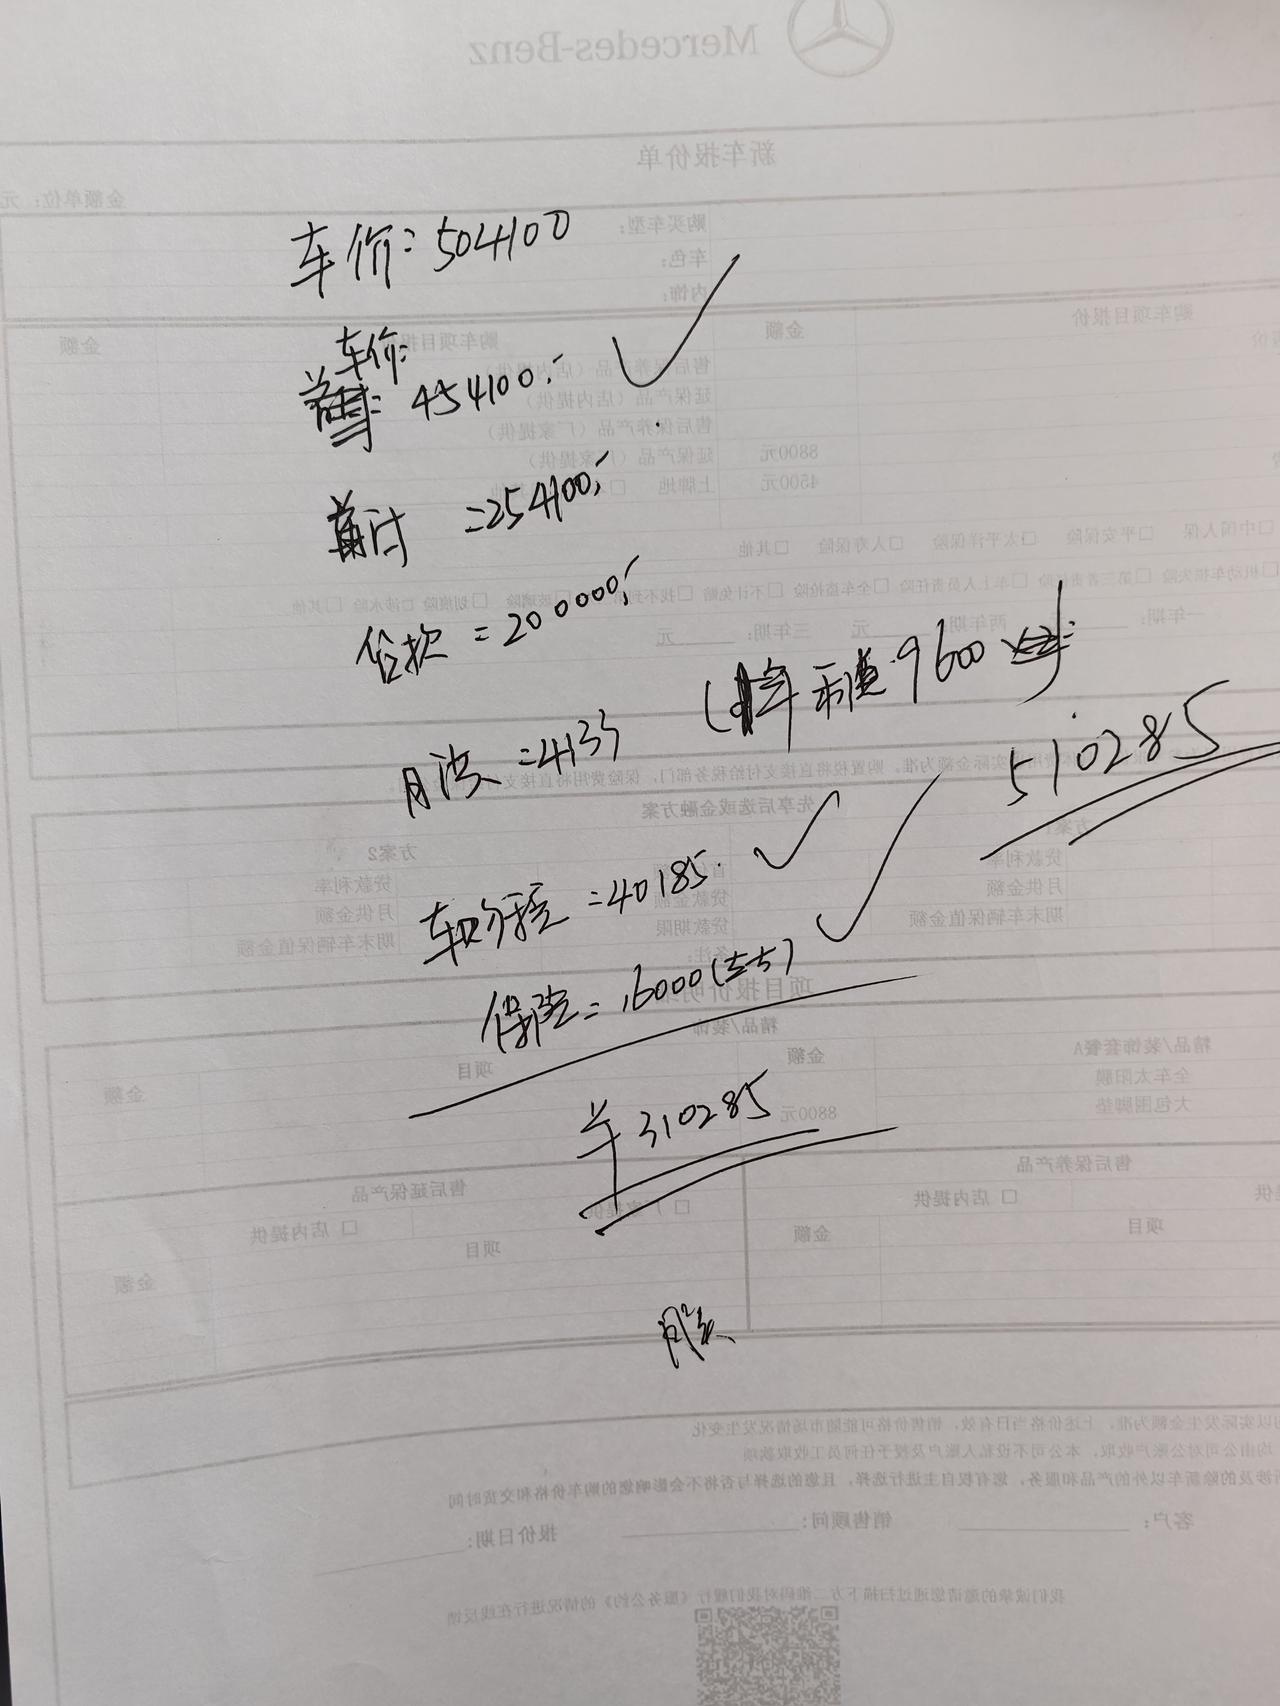 Mercedes-Benz
新车报价单
金额单位：元
购买车型：
车色：
内饰：
购车项目报价
金额
金额
延保产品（店内提供）
售后保养产品（厂家提供）
8800元
4500元
上牌地
中国人保 □平安保险 □太平洋保险 □人寿保险 □其他
一年期：
两年期：
元
三年期：
元
车价：504100
车价：
454100
首付 =254100
贷款 =200000
月供 =4133
9600
510285
车购税 =40185
保险=16000(左右)
¥310285
先享后选或金融方案
方案2
贷款利率
贷款利率
月供金额
月供金额
期末车辆保值金额
期末车辆保值金额
贷款金额
贷款期限
备注：
精品/装饰
精品/装饰套餐A
金额
项目
金额
全车太阳膜
大包围脚垫
8800元
售后保养产品
售后延保产品
□ 店内提供
□ 店内提供
项目
金额
项目
金额
以实际发生金额为准，上述价格当日有效，销售价格可能随市场情况发生变化
均由公司对公账户收取，本公司不设私人账户及授予任何员工收取款项
涉及的除新车以外的产品和服务，您有权自主进行选择，且您的选择与否将不会影响您的购车价格和交货时间
客户：
销售顾问：
报价日期：
我们诚挚的邀请您通过扫描下方二维码对我们履行《服务公约》的情况进行在线反馈